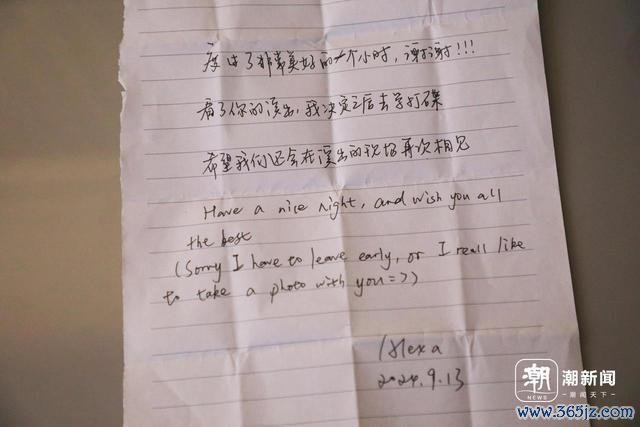 度过了非常美好的一个小时，谢谢!!!
看了你的演出，我决定之后去学打碟
希望我们还会在演出的现场再次相见
Have a nice night, and wish you all
the best
(Sorry I have to leave early, or I reall like
to take a photo with you=))
Alexa
2024.9.13
潮 NEWS 潮新闻
·潮闻天下·
www.365jz.com